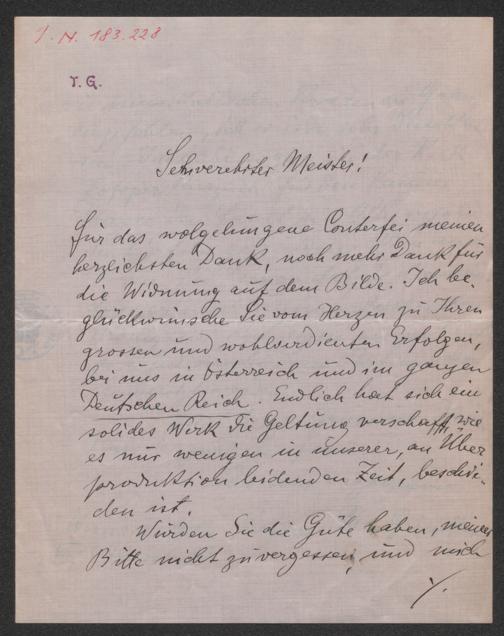 I. N. 183.228
T. G.
Sehrverehrter Meister!
Für das wolgelungene Conterfei meinen
herzlichsten Dank, noch mehr Dank für
die Widmung auf dem Bilde. Ich be-
glückwünsche Sie vom Herzen zu Ihren
grossen und wohlverdienten Erfolgen,
bei uns in Österreich und im ganzen
Deutschen Reich. Endlich hat sich ein
solides Werk die Geltung verschafft, wie
es nur wenigen in unserer, an Über
produktion leidenden Zeit, beschie-
den ist.
Würden Sie die Güte haben, meine
Bitte nicht zu vergessen, und mich
./.